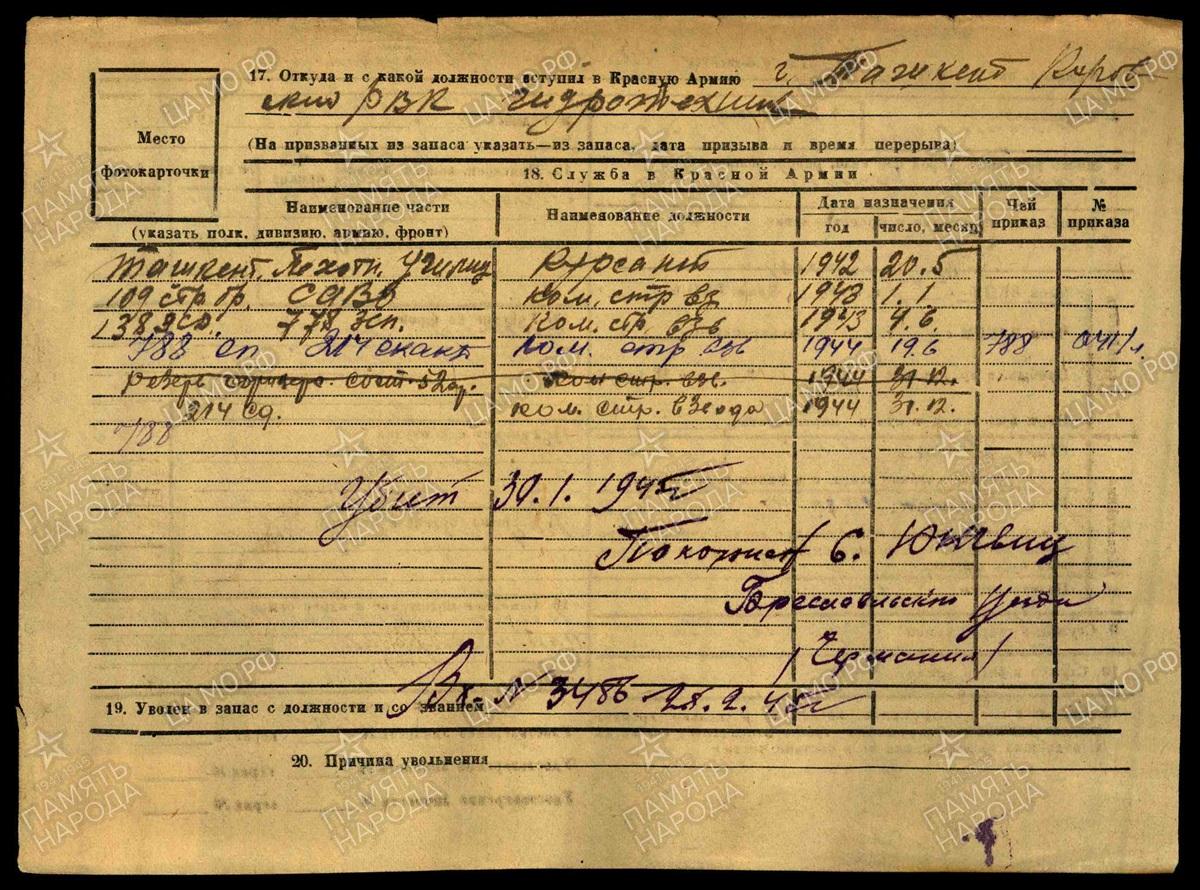 17. Откуда и с какой должности вступил в Красную Армию г. Ташкент Киров-
ский РВК гидротехник
(На призванных из запаса указать—из запаса, дата призыва и время перерыва)
Место
фотокарточки
18. Служба в Красной Армии
Наименование части
(указать полк, дивизию, армию, фронт)
Наименование должности
Дата назначения
год
число, месяц
Чей
приказ
№
приказа
Ташкент. Пехотн. Училищ Курсант 1942 20.5
109 стр бр. САВО ком. стр вз 1943 1.1.
138 зсп. ком. стр. взв 1943 4.6.
788 сп 214 ком. стр взв 1944 19.6 788 041/л.
Резерв офицерс. сост. 52 ар. ком стр. взв. 1944 31.12.
214 сд. ком. стр. взвода 1944 31.12.
788
Убит 30.1. 1945
Похоронен с.
Бреславльского уезда
/Германия/
Вх. № 3486 28.2.45
19. Уволен в запас с должности и со званием
20. Причина увольнения
ЦАМО.РФ
1941-1945
ПАМЯТЬ
НАРОДА